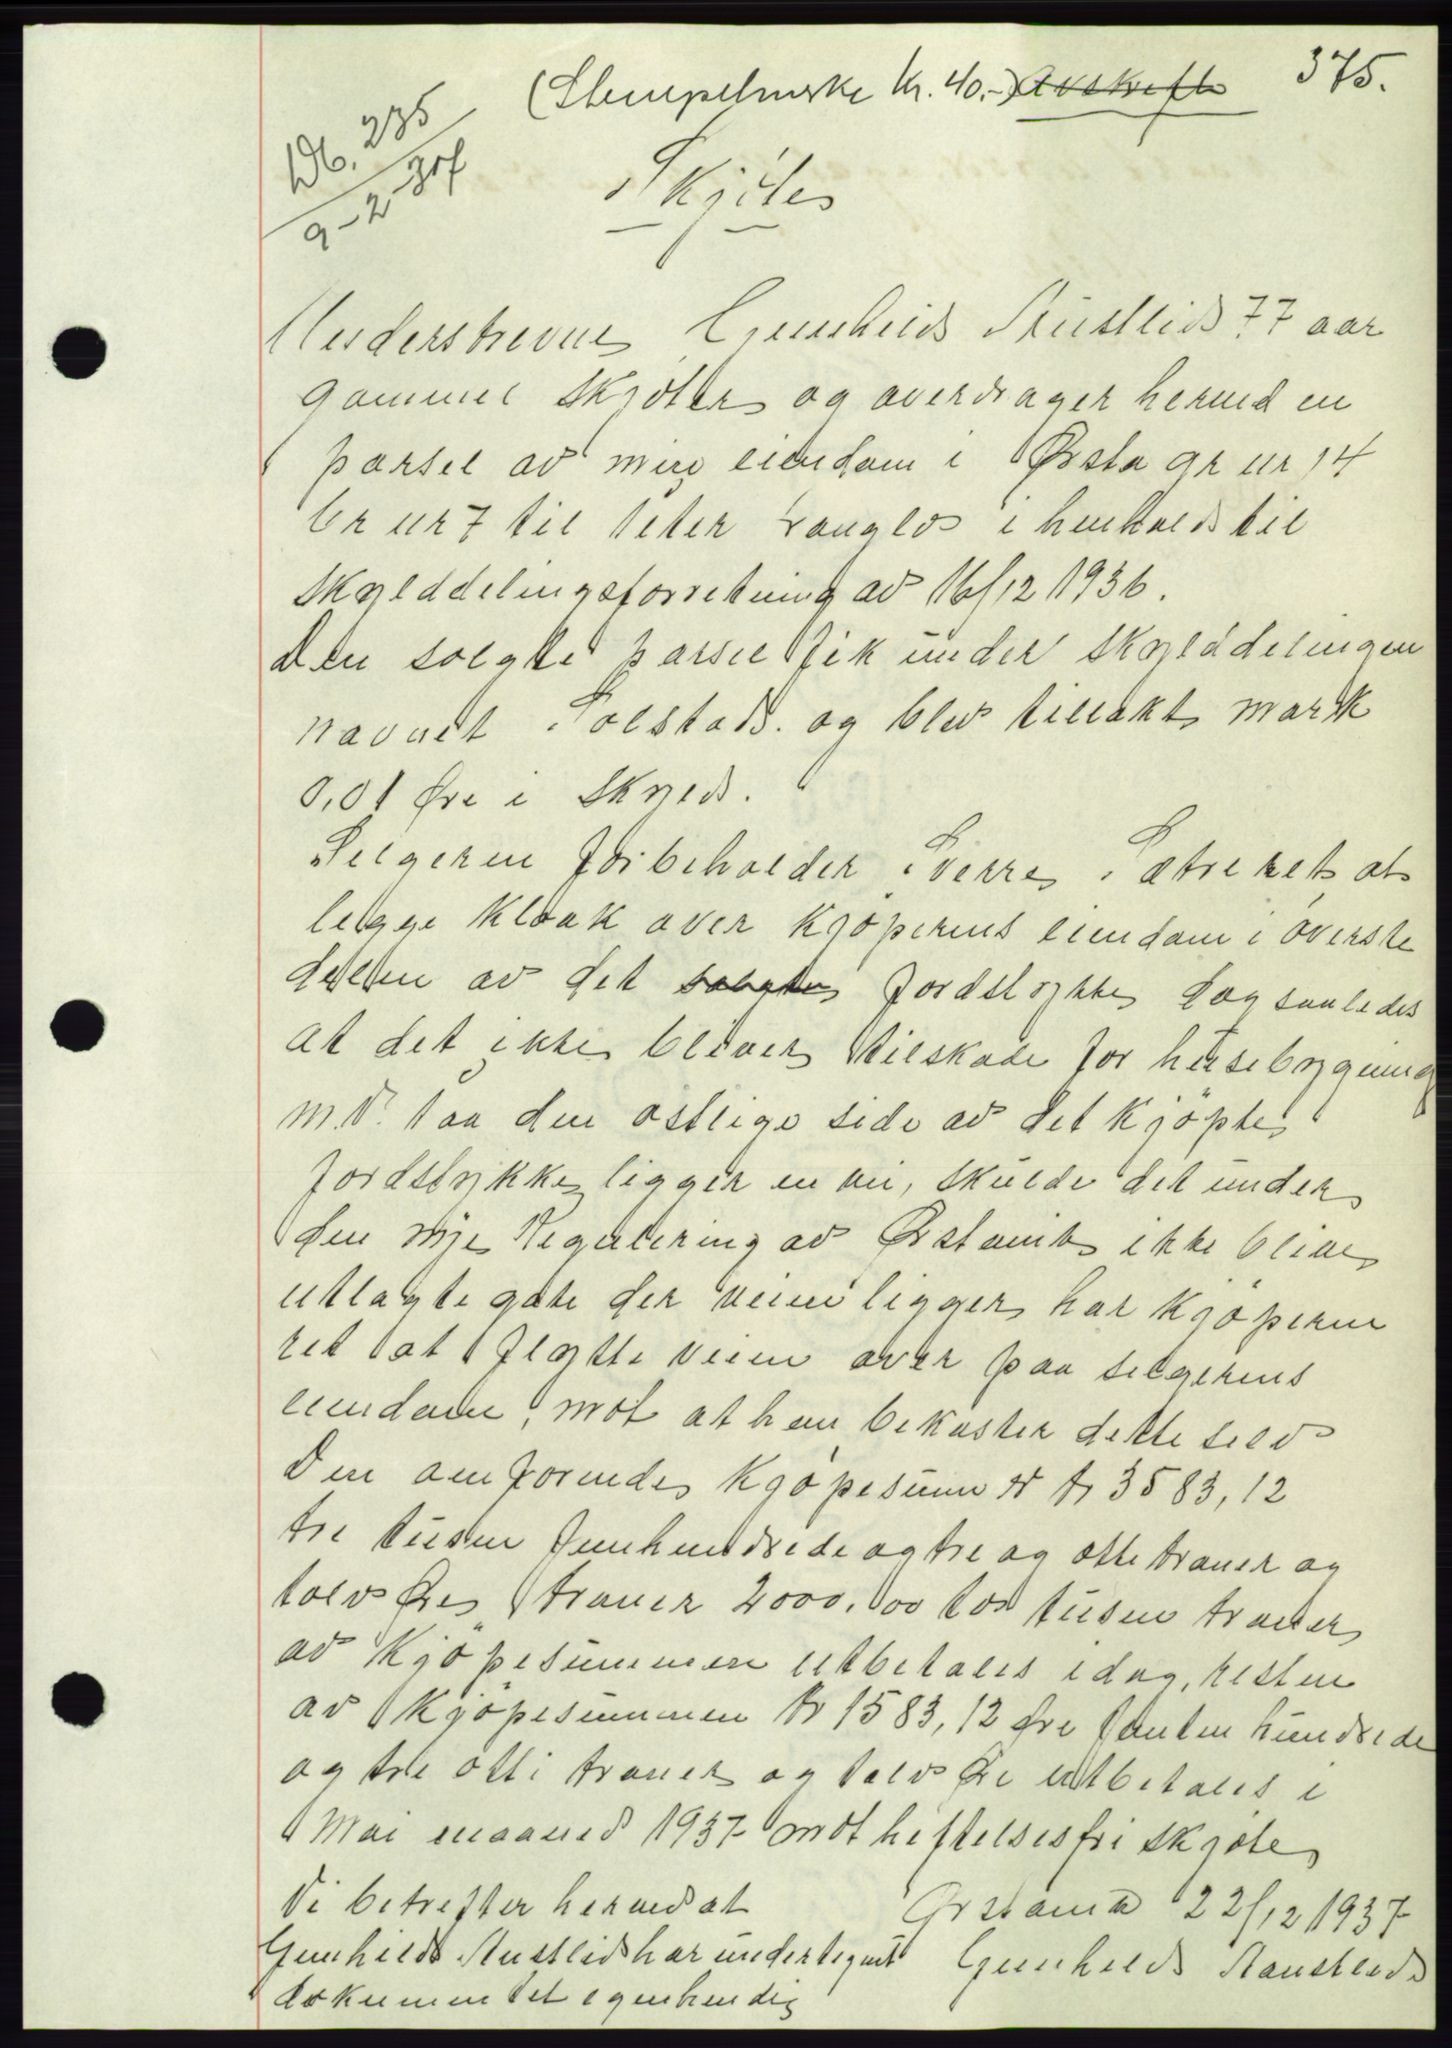 375.
(Stempelmerke kr. 40.-) Avskrift
Db. 235
9-2-37
Skjöte
Understrevne Gunhild Austlid 77 aar
gammel skjöter og overdrager hermed en
parsel av min eiendom i Ørsta gr nr 14
br nr 7 til Peter i henhold til
skylddelingsforretning av 16/12 1936.
Den solgte parsel fik under skylddelingen
navnet Solstad. og blev tillakt mark
0,01 Øre i skyld.
Selgeren forbeholder Sverre Sætre ret at
legge kloak over kjöperens eiendom i överste
delen av det solgte jordstykke dog saaledes
at det ikke bliver tilskade for husebygning
m.v. Paa den östlige side av det kjöpte
jordstykke ligger en vei, skulde det under
den nye Regulering av Ørstavik ikke blive
utlagte gate der veien ligger har kjöperen
ret at flytte veien over paa selgerens
eiendom, mot at han bekoster dette selv
Den omforende kjöpesum er kr 3583,12
tre tusen femhundrede og tre og otte kroner og
tolv Øre, kroner 2000,00 to tusen kroner
av kjöpesummen utbetales idag, resten
av kjöpesummen kr 1583,12 øre femten hundrede
og tre otti kroner og tolv Øre utbetales i
Mai maaned 1937 mot heftelsesfri skjöte
Vi betrefter hermed at
Gunhild Austlid har undertegnet
dokumentet egenhendig
Ørstavik 22/12 1937
Gunhild Aaustlid